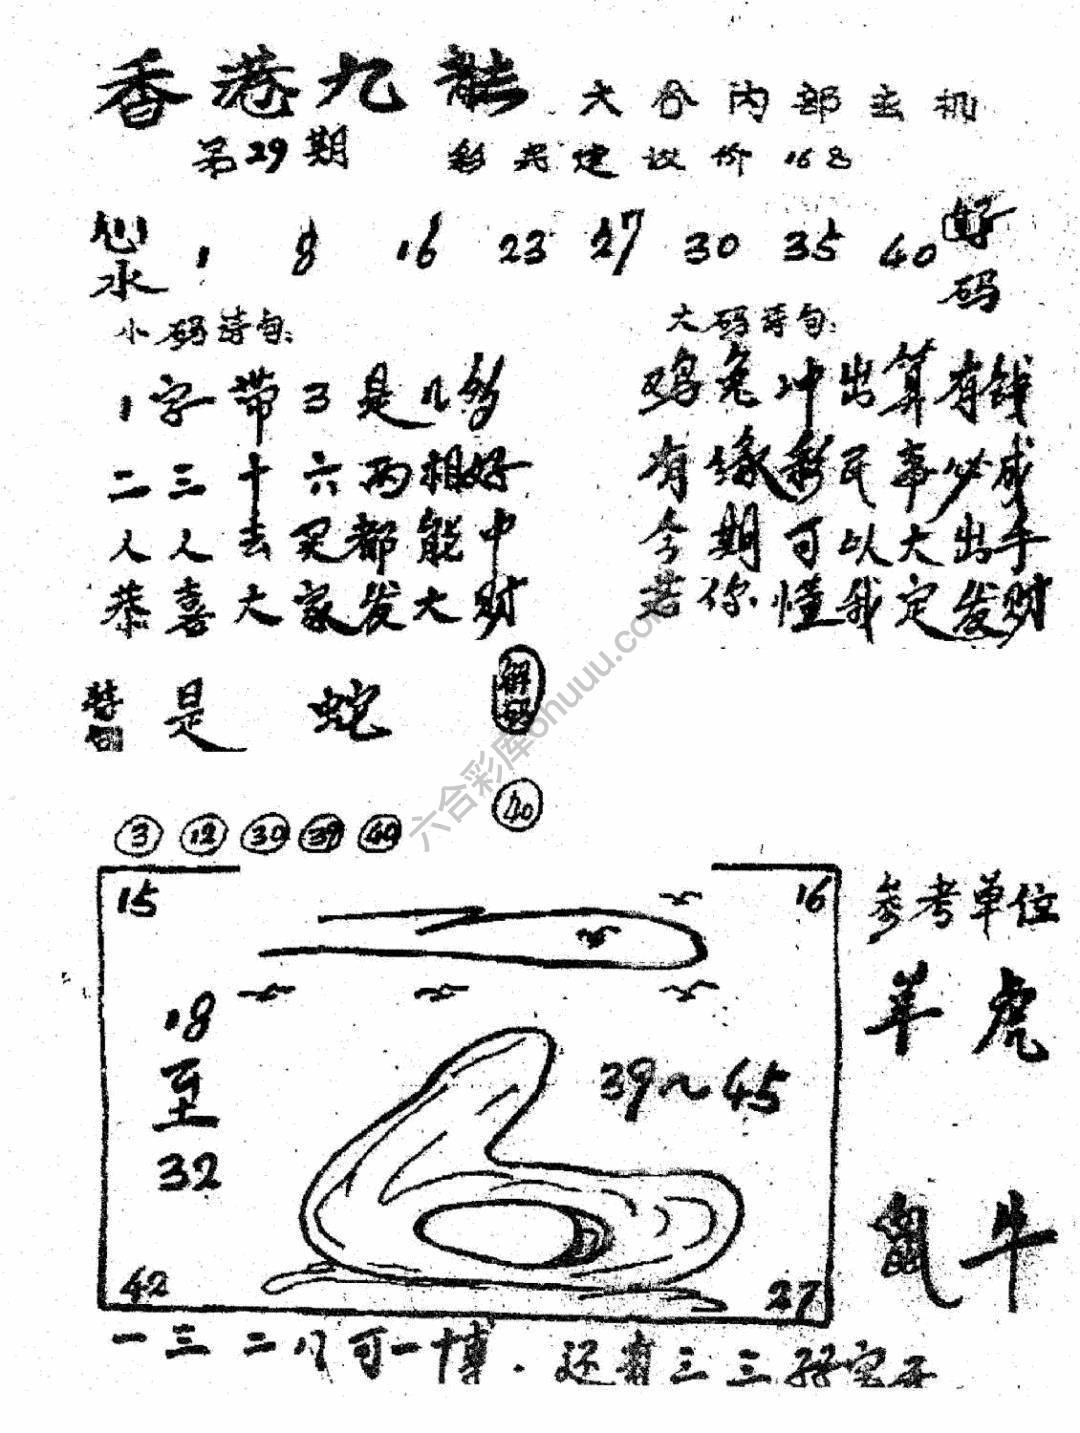 香港九龍 六合内部玄机
第29期 彩民建议价16名
心水 1 8 16 23 27 30 35 40 好码
小码诗句: 大码诗句:
1字带3是几多 鸡兔冲出算有钱
二三十六两相好 有缘彩民事必成
人人去买都能中 今期可以大出手
恭喜大家发大财 若你懂我定发财
是 蛇 解码
3 12 30 39 40 40
15 16
参考单位
羊 虎
18至32
39~45
鼠 牛
42 27
一三二八可一博.还有三三
六合彩库ohuuu.com